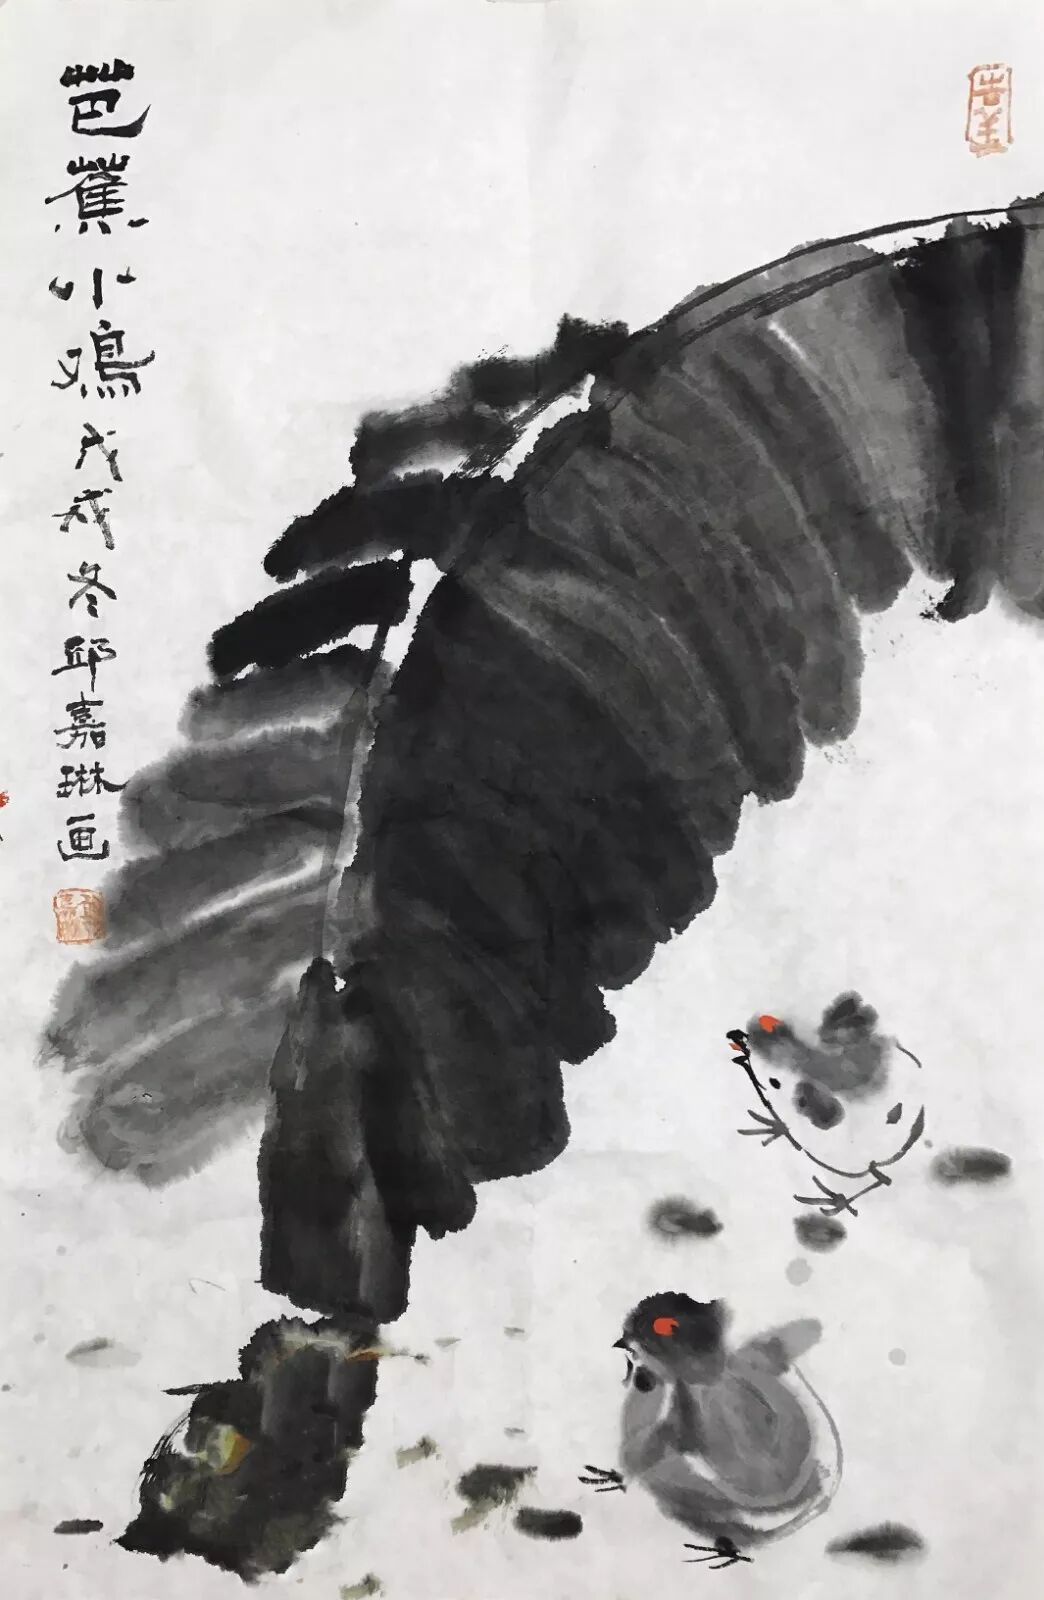 芭蕉小鸡戊戌冬邱嘉琳画